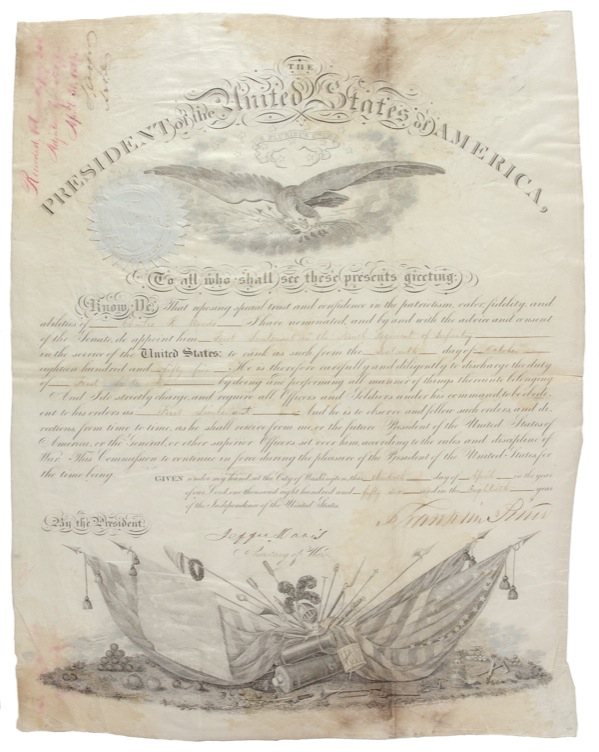 THE
PRESIDENT of the United States of AMERICA,
To all who shall see these presents greeting:
Know Ye: That reposing special trust and confidence in the patriotism, valor, fidelity, and
abilities of I have nominated, and by and with the advice and consent
of the Senate, do appoint him First Lieutenant in the Regiment of Infantry
in the service of the United States: to rank as such from the day of October
eighteen hundred and fifty He is therefore carefully and diligently to discharge the duty
of First by doing and performing all manner of things thereunto belonging.
And I do strictly charge, and require all Officers and Soldiers under his command, to be obedi-
ent to his orders as First Lieutenant And he is to observe and follow such orders, and di-
rections, from time to time, as he shall receive from me, or the future President of the United States of
America, or the General, or other superior Officers set over him, according to the rules and discipline of
War. This Commission to continue in force during the pleasure of the President of the United States for
the time being.
GIVEN under my hand, at the City of Washington, this day of April in the year
of our Lord, one thousand eight hundred and fifty six and in the Eightieth year
of the Independence of the United States.
By the President
Franklin Pierce
Jeffer Davis
Secretary of War